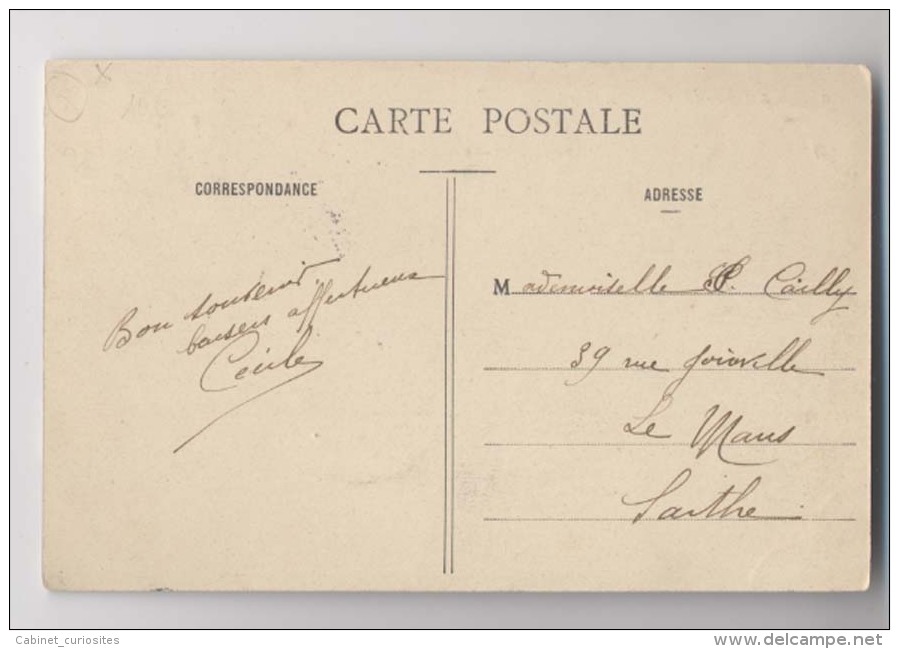 CARTE POSTALE
CORRESPONDANCE
Bon souvenir
baisers affectueux
Cécile
ADRESSE
Mademoiselle P. Cailly
39 rue Joinville
Le Mans
Sarthe
Cabinet_curiosites
www.delcampe.net